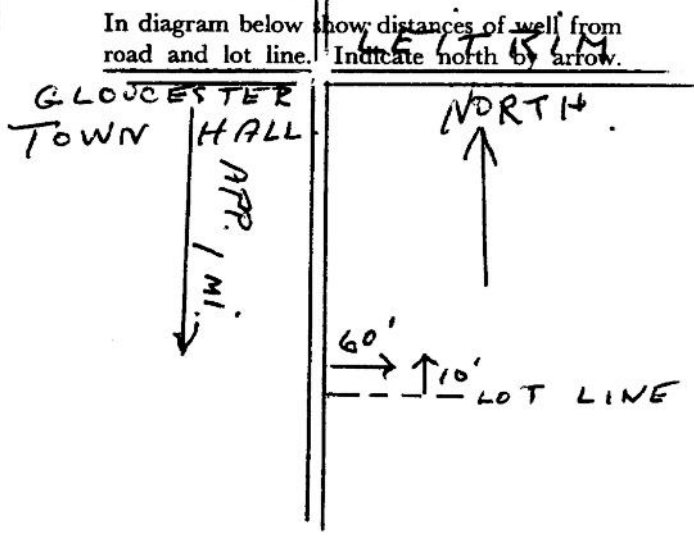 In diagram below show distances of well from
road and lot line. Indicate north by arrow.
LEITRIM
GLOUCESTER
TOWN HALL
NORTH.
APP. 1 MI.
60'
10'
LOT LINE